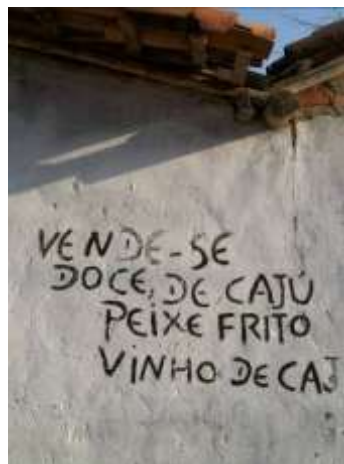 VENDE-SE
DOCE, DE CAJÚ
PEIXE FRITO
VINHO DE CAJ